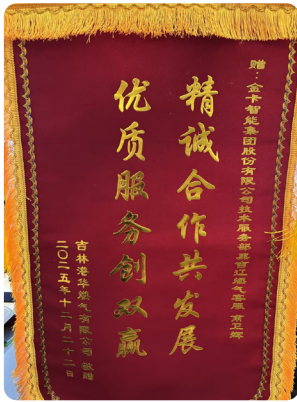 赠：金卡智能集团股份有限公司技术服务部吴吉江燃气客服 常卫辉
精诚合作共发展
优质服务创双赢
吉林港华燃气有限公司 敬赠
二〇二五年十二月二十二日